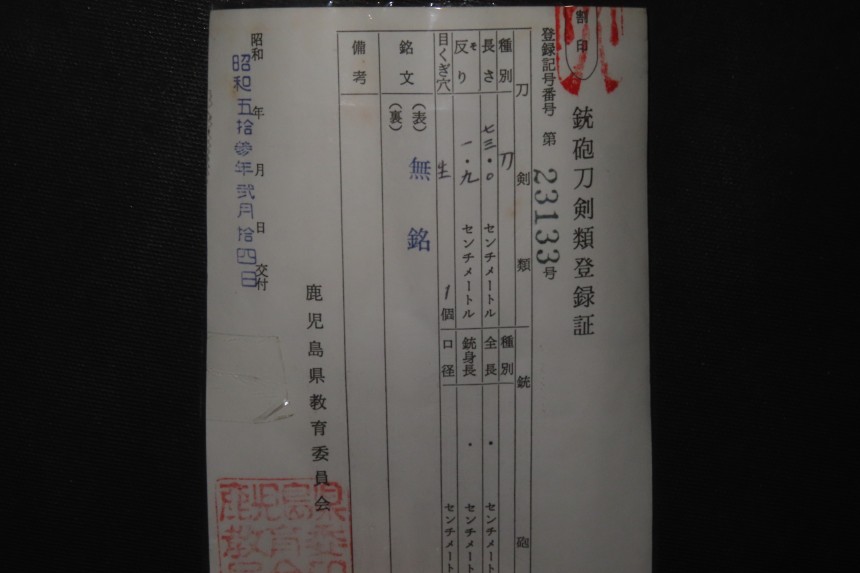 割印
銃砲刀剣類登録証
登録記号番号 第 23133 号
刀剣類
銃砲
種別 刀
長さ 七三・〇 センチメートル
反り 一・九 センチメートル
そ
目くぎ穴 生 1個
種別
全長 ・ センチメート
銃身長 ・ センチメート
口径 センチメート
銘文 (表) 無銘
(裏)
備考
鹿児島県教育委員会
昭和 年 月 日 交付
昭和五拾参年弐月拾四日
鹿児島県
教育委